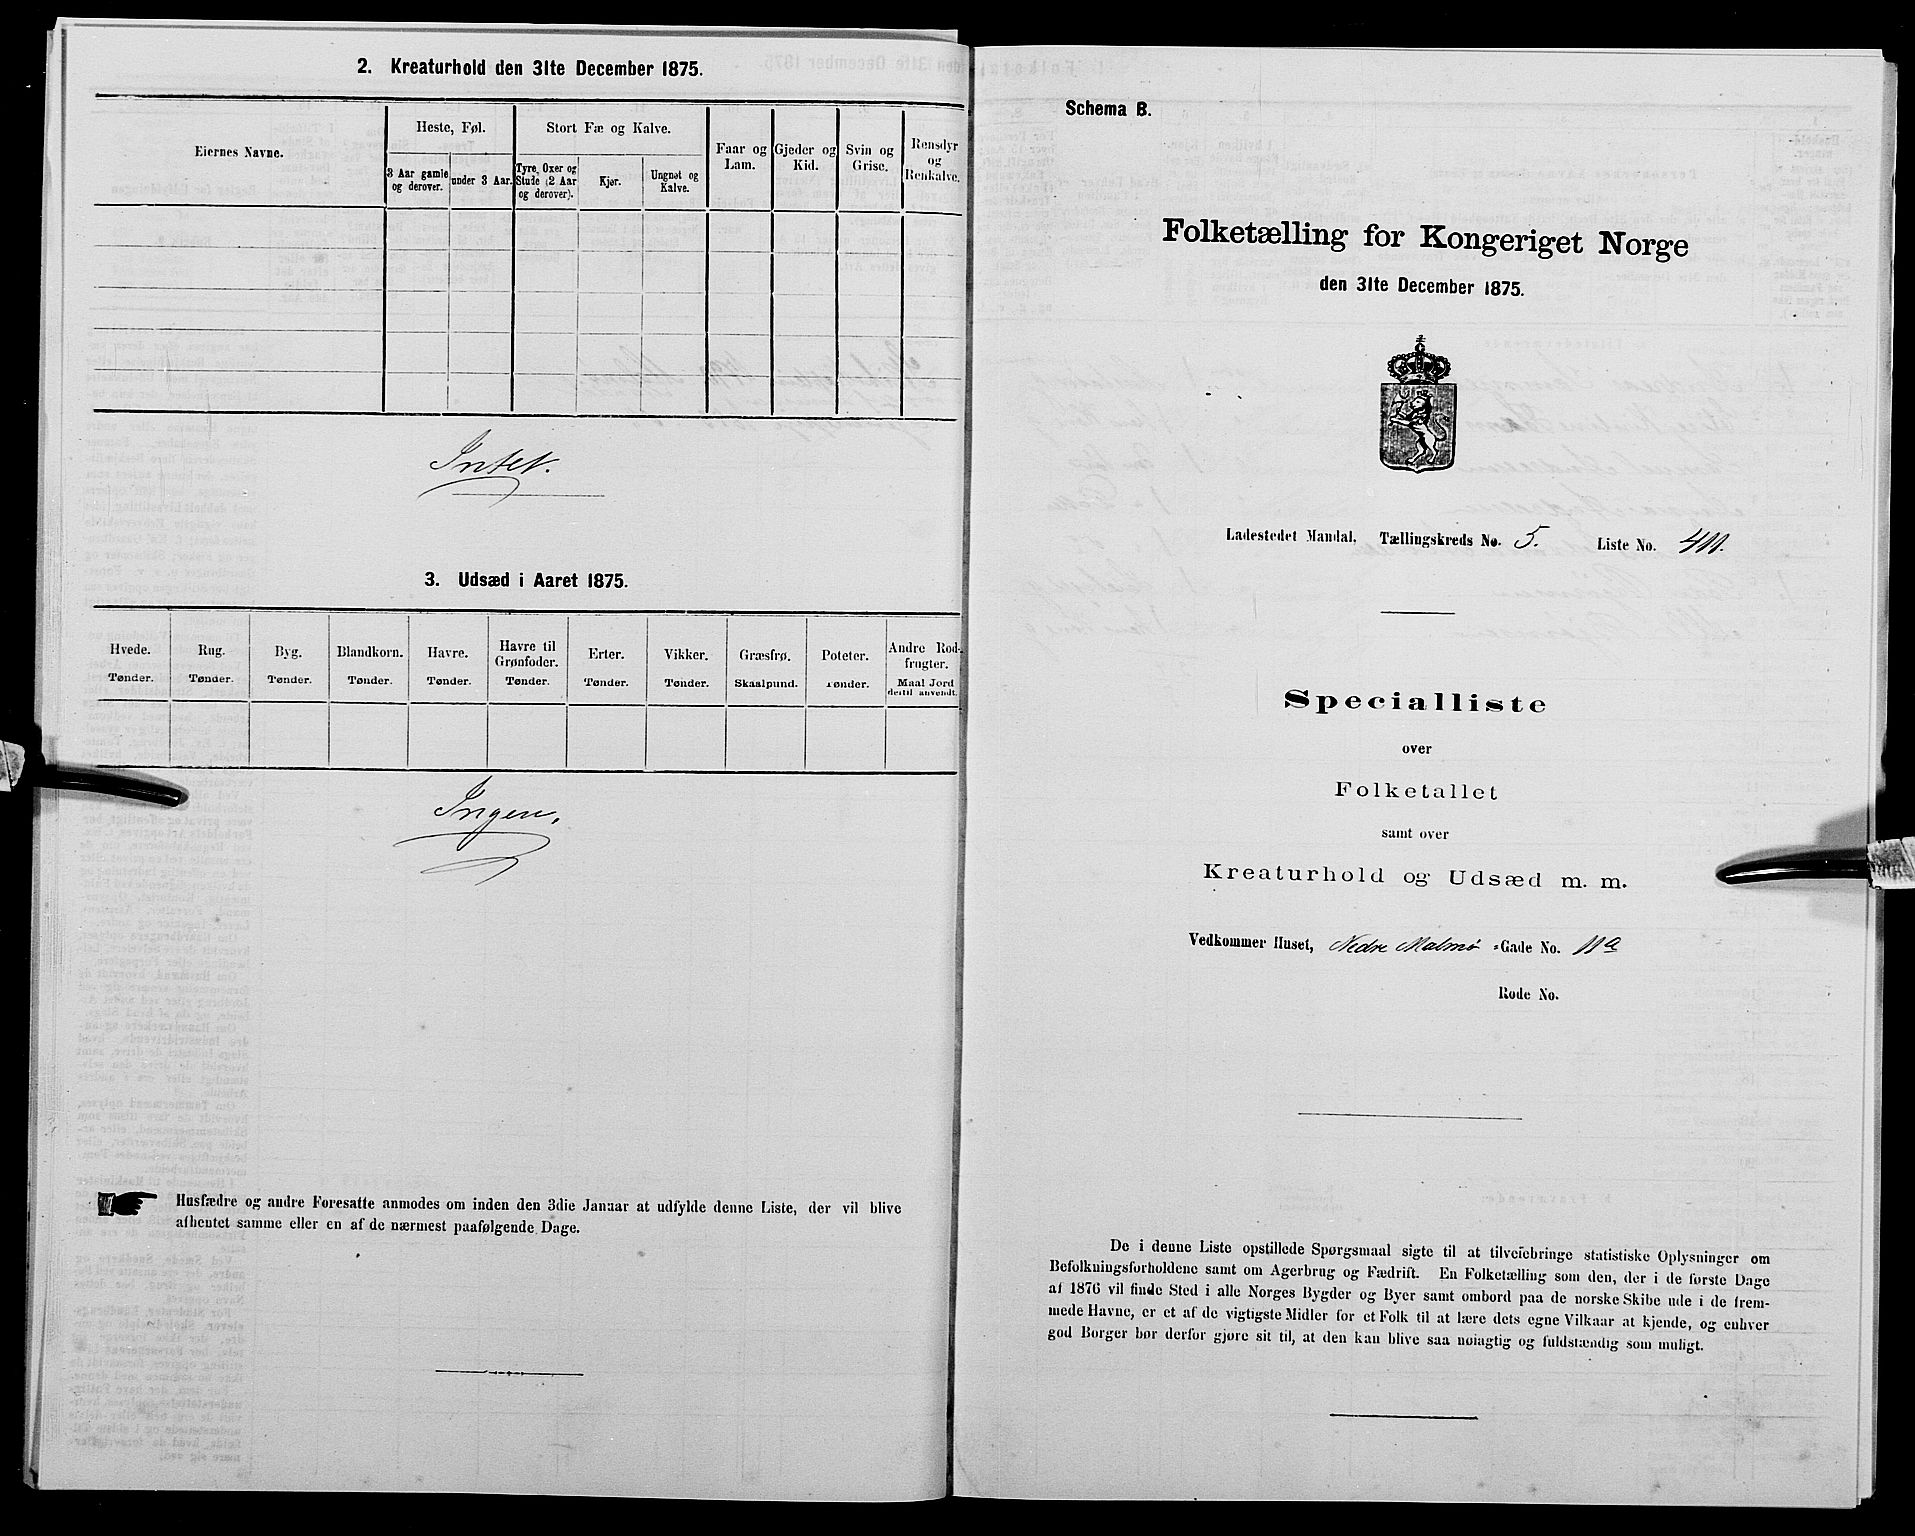 2. Kreaturhold den 31te December 1875.
Eiernes Navne.
Heste, Føl.
Stort Fæ og Kalve.
Faar og Lam.
Gjeder og Kid.
Svin og Grise.
Rensdyr og Renkalve.
3 Aar gamle og derover.
under 3 Aar.
Tyre, Oxer og Stude (2 Aar og derover).
Kjør.
Ungnøt og Kalve.
Intet.
3. Udsæd i Aaret 1875.
Hvede. Rug. Byg. Blandkorn. Havre. Havre til Grønfoder. Erter. Vikker. Græsfrø. Poteter. Andre Rodfrugter.
Tønder. Tønder. Tønder. Tønder. Tønder. Tønder. Tønder. Tønder. Skaalpund. Tønder. Maal Jord dertil anvendt.
Ingen.
Husfædre og andre Foresatte anmodes om inden den 3die Januar at udfylde denne Liste, der vil blive
afhentet samme eller en af de nærmest paafølgende Dage.
Schema B.
Folketælling for Kongeriget Norge
den 31te December 1875.
Ladestedet Mandal, Tællingskreds No. 5. Liste No.
Specialliste
over
Folketallet
samt over
Kreaturhold og Udsæd m. m.
Vedkommer Huset, Nedre Malmø -Gade No. 11a
Rode No.
De i denne Liste opstillede Spørgsmaal sigte til at tilveiebringe statistiske Oplysninger om
Befolkningsforholdene samt om Agerbrug og Fædrift. En Folketælling som den, der i de første Dage
af 1876 vil finde Sted i alle Norges Bygder og Byer samt ombord paa de norske Skibe ude i de frem-
mede Havne, er et af de vigtigste Midler for et Folk til at lære dets egne Vilkaar at kjende, og enhver
god Borger bør derfor gjøre sit til, at den kan blive saa nøiagtig og fuldstændig som muligt.